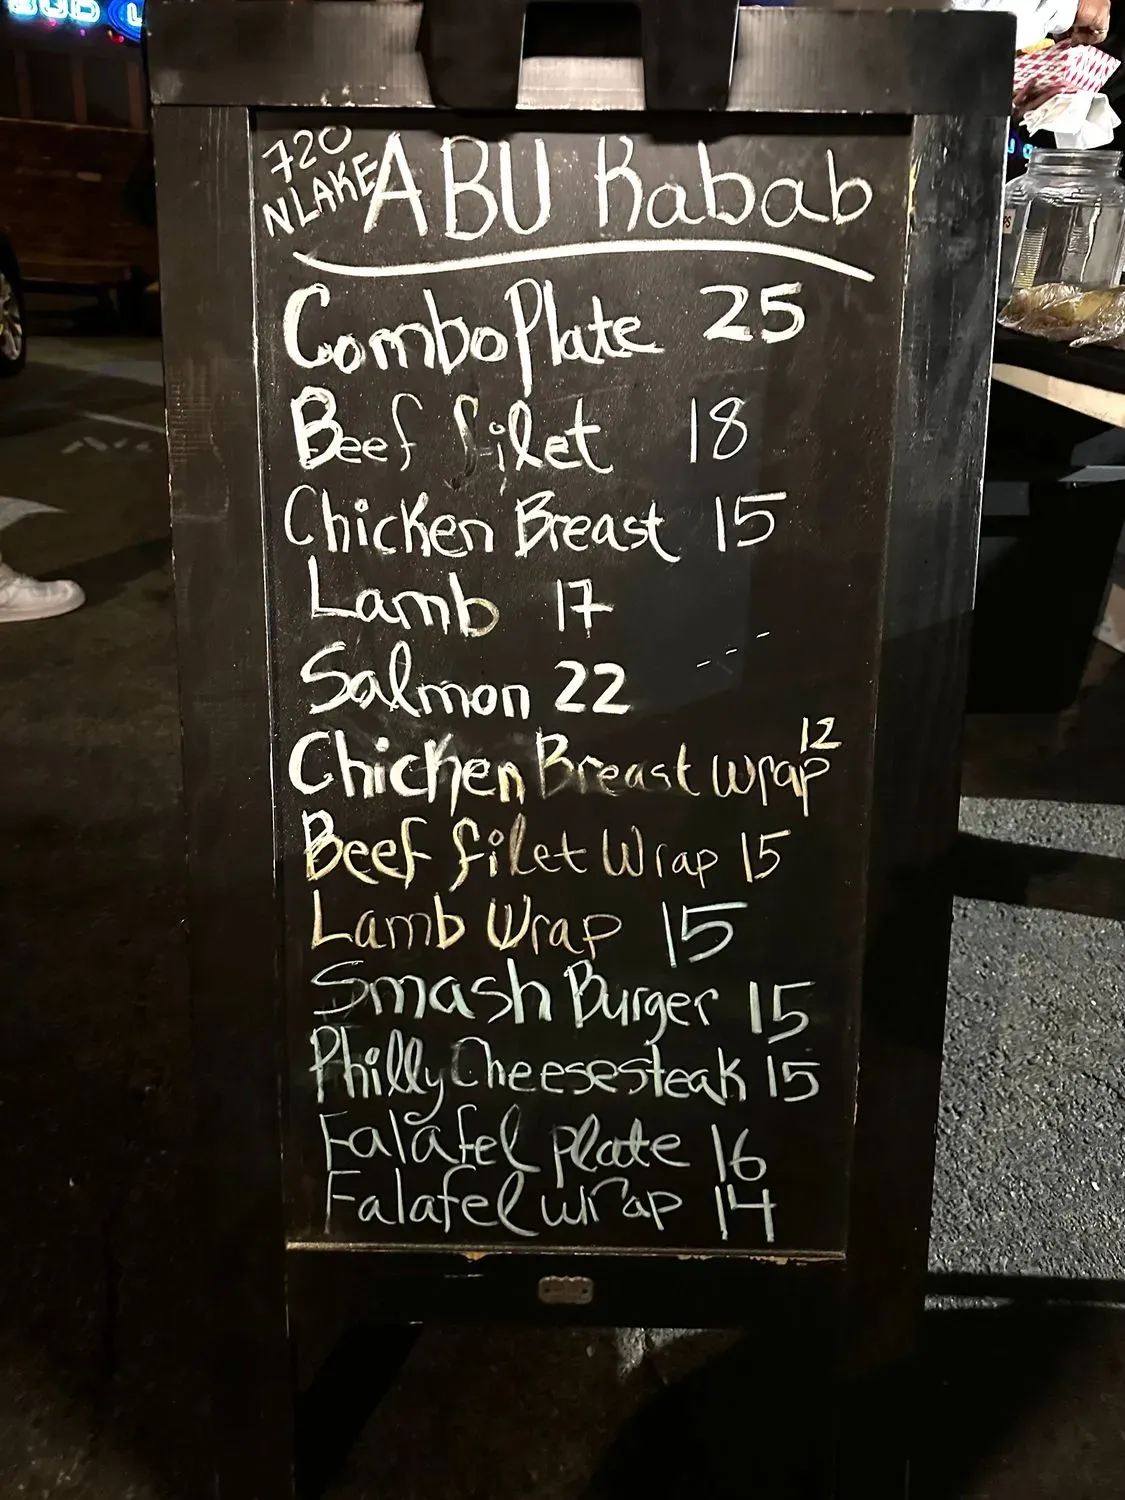 720
N LAKE
ABU Kabab
Combo Plate 25
Beef filet 18
Chicken Breast 15
Lamb 17
Salmon 22
Chicken Breast wrap 12
Beef filet Wrap 15
Lamb Wrap 15
Smash Burger 15
Philly Cheesesteak 15
Falafel plate 16
Falafel wrap 14